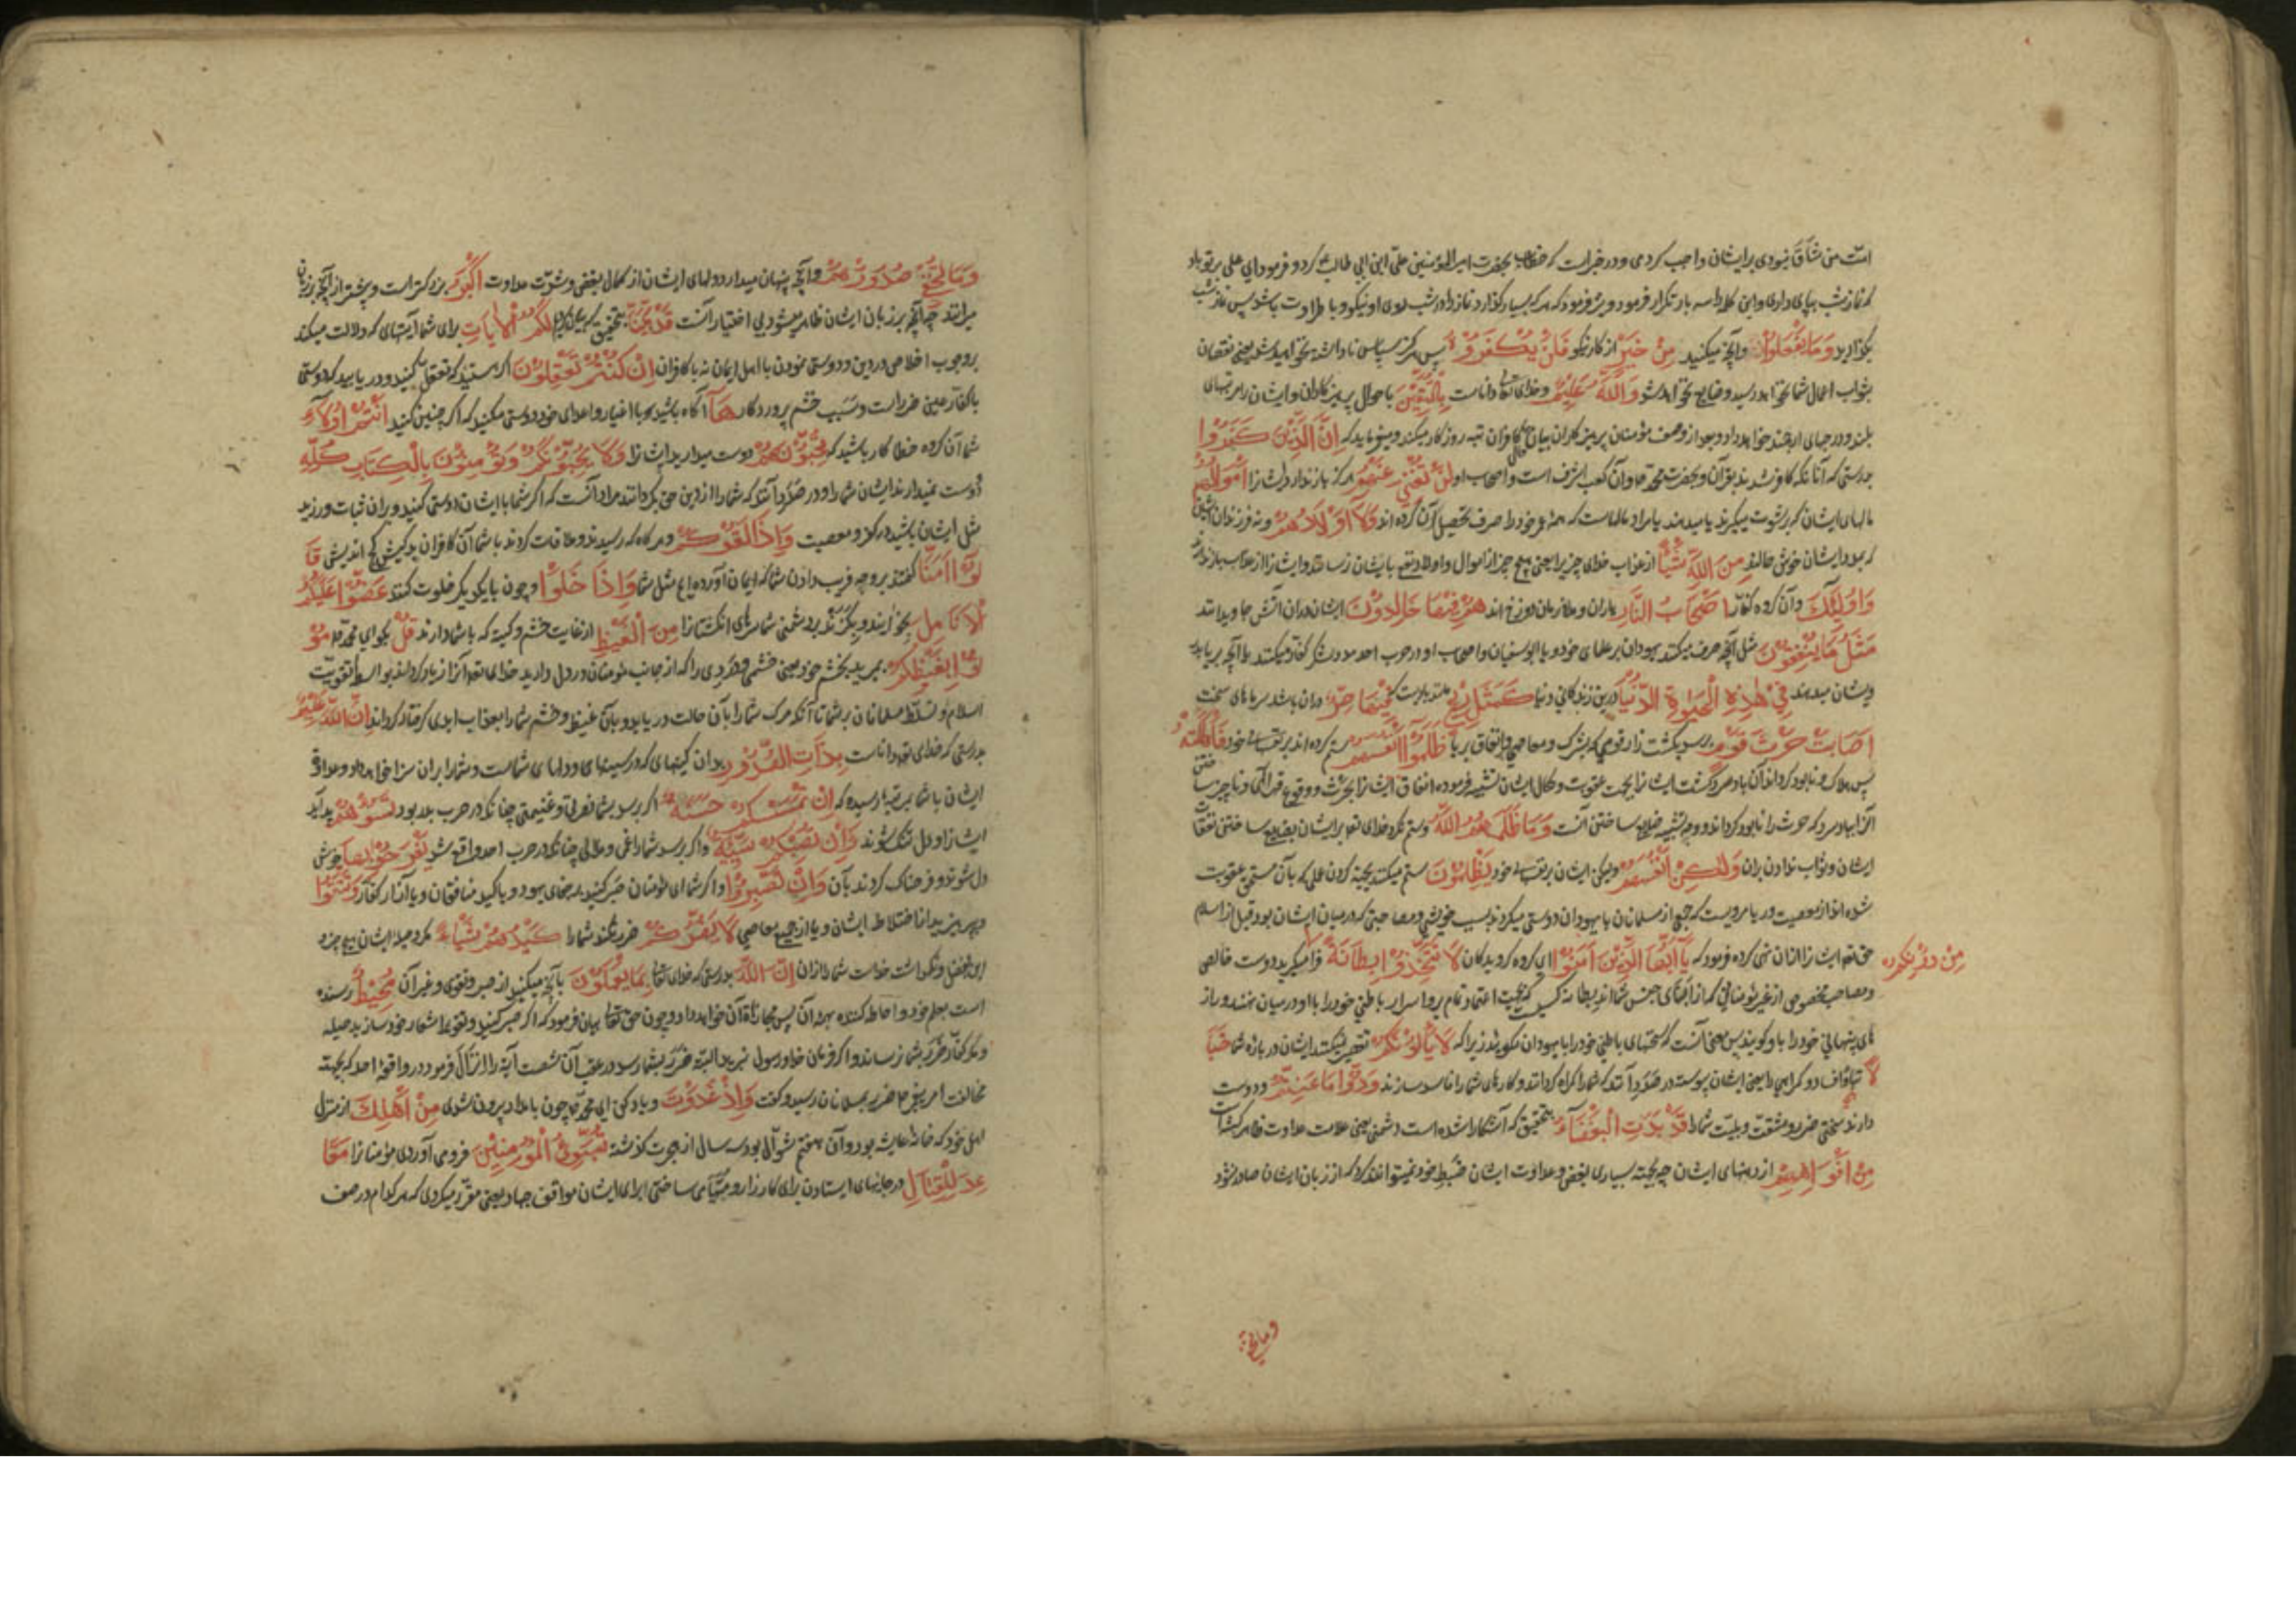 امت من شاق نبودی بر ایشان واجب کردمی و در خبر است که خطاب بحضرت امیر المؤمنین علی ابن ابی طالب کرد و فرمود ای علی بر تو باد
که نماز شب بپای داری و این کلمه را سه بار تکرار فرمود و نیز فرمود که هر که بسیار گذارد نماز را در شب روی او نیکو و با طراوت باشد پس نماز شب
بگذارید وَمَا یَفْعَلُوا وآنچه میکنید مِنْ خَیْرٍ از کار نیکو فَلَنْ یُکْفَرُوهُ پس هرگز سپاس ناداشته نخواهید شد یعنی نقصان
ثواب اعمال شما نخواهد رسید و ضایع نخواهد شد وَاللّٰهُ عَلِیْمٌ وخدای تعالی داناست بِالْمُتَّقِیْنَ باحوال پرهیزکاران و ایشان را مرتبهای
بلند و درجهای ارجمند خواهد داد و بعد از وصف مؤمنان پرهیزکاران بیان حال کافران تبه روزگار میکند و میفرماید که اِنَّ الَّذِیْنَ کَفَرُوا
بدرستی که آنانکه کافر شدند بقرآن و بحضرت محمد و آن کعب اشرف است و اصحاب او لَنْ تُغْنِیَ عَنْهُمْ هرگز باز ندارد ایشانرا اَمْوَالُهُمْ
مالهای ایشان که برشوت میگیرند یا میدهند یا مراد مالهاست که همه عمر خود را صرف تحصیل آن کرده اند وَلَا اَوْلَادُهُمْ و نه فرزندان ایشان
که بمدد ایشان خوش حالند مِنَ اللّٰهِ شَیْئًا از عذاب خدای چیزی را یعنی هیچ چیز از اموال و اولاد نفع بایشان نرساند و ایشانرا از عذاب باز ندارد
وَاُولٰئِکَ وآن گروه کفار اَصْحَابُ النَّارِ یاران و ملازمان دوزخ اند هُمْ فِیْهَا خَالِدُوْنَ ایشان دران آتش جاویدانند
مَثَلُ مَا یُنْفِقُوْنَ مثل آنچه صرف میکنند یهودان بر علمای خود و یا ابو سفیان و اصحاب او در حرب احد و در لشکر کفار میکنند یا آنچه بریا بدر
ویشان میدهند فِیْ هٰذِهِ الْحَیٰوةِ الدُّنْیَا درین زندگانی دنیا کَمَثَلِ رِیْحٍ مانند بادیست که فِیْهَا صِرٌّ دران باشد سرمای سخت
اَصَابَتْ حَرْثَ قَوْمٍ برسد بکشت زار قومی که بشرک و معاصی و انفاق بریا ظَلَمُوْا اَنْفُسَهُمْ ستم کرده اند بر نفسهای خود فَاَهْلَکَتْهُ
پس هلاک و نابود گرداند آن باد سرد کشت ایشانرا بجهت عقوبت و نکال ایشان تشبیه فرموده انفاق ایشانرا بحرث و وقوع قهر الهی و ناچیز ساختن
آنرا بباد سرد که حرث را نابود گرداند و وجه تشبیه ضایع ساختن آنست وَمَا ظَلَمَهُمُ اللّٰهُ و ستم نکرد خدای تعالی بر ایشان بضایع ساختن نفقات
ایشان و ثواب ندادن بران وَلٰکِنْ اَنْفُسَهُمْ ولیکن ایشان بر نفسهای خود یَظْلِمُوْنَ ستم میکنند بجهة کردن عملی که بآن مستحق عقوبت
شده اند از معصیت و ریا مرویست که جمعی از مسلمانان با یهودان دوستی میکردند بسبب خویشی و مصاحبتی که در میان ایشان بود قبل از اسلام
حق تعالی ایشانرا ازان نهی کرده فرمود که یَا اَیُّهَا الَّذِیْنَ اٰمَنُوْا ای گروه گرویدگان لَا تَتَّخِذُوْا بِطَانَةً فرا مگیرید دوست خالص
مِنْ دُوْنِکُمْ
و مصاحب مخصوص از غیر مؤمنانی که از ابنای جنس شما اند بطانه کسی که بجهت اعتماد تمام برو اسرار باطنی خود را با او در میان نهند و راز
های پنهانی خود را باو گویند پس معنی آنست که سخنهای باطنی خود را با یهودان مگویید زیرا که لَا یَأْلُوْنَکُمْ تقصیر نمیکنند ایشان در باره شما خَبَا
لًا تباه و فساد و گمراهی را یعنی ایشان پیوسته در صدد آنند که شما را گمراه گردانند و کارهای شما را فاسد سازند وَدُّوْا مَا عَنِتُّمْ و دوست
دارند سختی ضرر و مشقت و بلیت شما را قَدْ بَدَتِ الْبَغْضَاءُ بتحقیق که آشکارا شده است دشمنی یعنی علامت عداوت ظاهر گشته است
مِنْ اَفْوَاهِهِمْ از دهنهای ایشان چه بجهة بسیاری بغض و عداوت ایشان ضبط خود نمیتوانند کرد که از زبان ایشان صادر نشود
وما تخفی
وَمَا تُخْفِیْ صُدُوْرُهُمْ وآنچه پنهان میدارد دلهای ایشان از کمال بغض و شدت عداوت اَکْبَرُ بزرگتر است و بیشتر از آنچه بر زبان
میرانند چه آنچه بر زبان ایشان ظاهر میشود بی اختیار آنست قَدْ بَیَّنَّا بتحقیق که بیان کردیم لَکُمُ الْاٰیَاتِ برای شما آیتهای که دلالت میکند
بر وجوب اخلاص در دین و دوستی نمودن با اهل ایمان نه با کافران اِنْ کُنْتُمْ تَعْقِلُوْنَ اگر هستید که تعقل کنید و دریابید که دوستی
با کفار عین ضرر است و سبب خشم پروردگار هَا آگاه باشید که با اغیار و اعدای خود دوستی میکنید که اگر چنین کنید اَنْتُمْ اُولَاءِ
شما آن گروه خطا کار باشید که تُحِبُّوْنَهُمْ دوست میدارید ایشانرا وَلَا یُحِبُّوْنَکُمْ وَتُؤْمِنُوْنَ بِالْکِتَابِ کُلِّهِ
دوست نمیدارند ایشان شما را و در صدد آنند که شما را از دین حق برگردانند مراد آنست که اگر شما با ایشان دوستی کنید و بران ثبات ورزید
مثل ایشان باشید در کفر و معصیت وَاِذَا لَقُوْکُمْ و هرگاه که رسیدند و ملاقات کردند با شما آن کافران بدکیش کج اندیش قَا
لُوْا اٰمَنَّا گفتند بر وجه فریب دادن شما که ایمان آورده ایم مثل شما وَاِذَا خَلَوْا و چون با یکدیگر خلوت کنند عَضُّوْا عَلَیْکُمُ
الْاَنَامِلَ بخوانند و بگزند بر دشمنی شما سرهای انگشتانرا مِنَ الْغَیْظِ از غایت خشم و کینه که با شما دارند قُلْ بگو ای محمد مُوْ
تُوْا بِغَیْظِکُمْ بمیرید بخشم خود یعنی خشمی و دردی را که از جانب مؤمنان در دل دارید خدای تعالی آنرا زیاد گرداند بواسطه تقویت
اسلام و تسلط مسلمانان بر شما تا آنکه مرگ شما را بآن حالت دریابد و بآن غیظ و خشم شما را بعذاب ابدی گرفتار گرداند اِنَّ اللّٰهَ عَلِیْمٌ
بدرستی که خدای تعالی داناست بِذَاتِ الصُّدُوْرِ بدان کینهای که در سینهای و دلهای شماست و شما را بران سزا خواهد داد و عداوت
ایشان با شما بمرتبه رسیده که اِنْ تَمْسَسْکُمْ حَسَنَةٌ اگر برسد بشما نصرتی و غنیمتی چنانکه در حرب بدر بود تَسُؤْهُمْ بد آید
ایشانرا و دل تنگ شوند وَاِنْ تُصِبْکُمْ سَیِّئَةٌ و اگر برسد شما را غمی و ملالی چنانکه در حرب احد واقع شد یَفْرَحُوْا بِهَا خوش
دل شوند و فرحناک گردند بآن وَاِنْ تَصْبِرُوْا و اگر شما ای مؤمنان صبر کنید بر جفای یهود و یا کید منافقان و یا آزار کفار وَتَتَّقُوْا
وبپرهیزید از اختلاط ایشان و یا از جمیع معاصی لَا یَضُرُّکُمْ ضرر نکند شما را کَیْدُهُمْ شَیْئًا مکر و حیله ایشان هیچ چیز
اِنَّ اللّٰهَ بدرستی که خدای تعالی بِمَا یَعْمَلُوْنَ بآنچه میکنید از صبر و تقوی و غیر آن مُحِیْطٌ رسنده
است بعلم خود و احاطه کننده بهمه آن پس مجازاة آن خواهد داد و چون حق تعالی بیان فرمود که اگر صبر کنید و تقوی را شعار خود سازید حیله
و مکر کفار ضرر بشما نرساند و اگر فرمان خدا و رسول نبرید البته ضرر بشما رسد در عقب آن شصت آیه را انزال فرمود در واقعه احد که بجهة
مخالفت امر پیغمبر ضرر بمسلمانان رسید و گفت وَاِذْ غَدَوْتَ و یاد کن ای محمد چون بامداد بیرون شدی مِنْ اَهْلِکَ از منزل
اهل خود که خانه عایشه بود و آن هفتم شوال بود سه سال از هجرت گذشته تُبَوِّئُ الْمُؤْمِنِیْنَ فرومی آوردی مؤمنانرا مَقَا
عِدَ لِلْقِتَالِ در جایهای ایستادن برای کارزار و مهیا می ساختی برای ایشان مواقف جهاد یعنی مقرر میکردی که هر کدام در صف